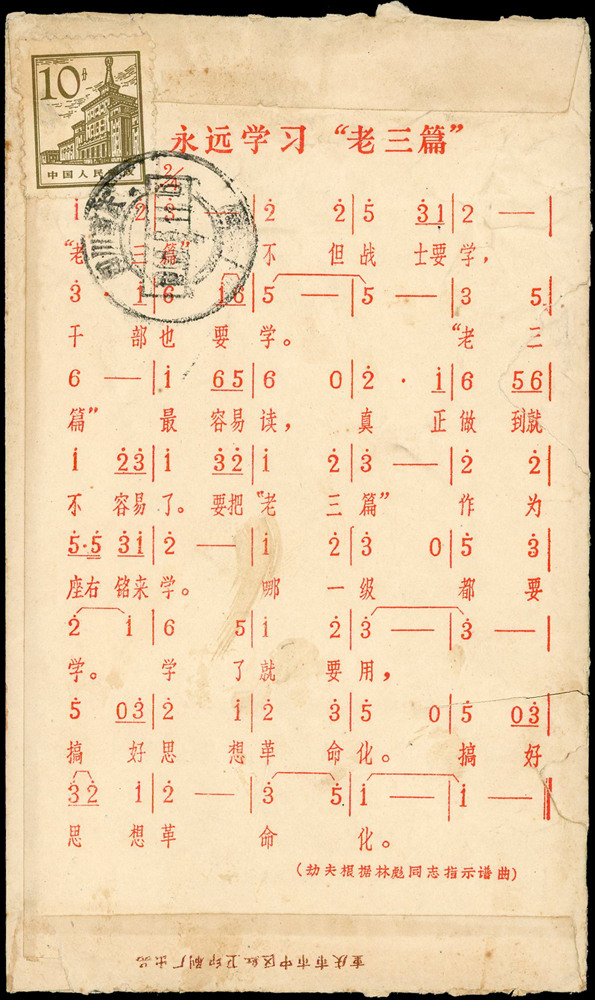 10分
中国人民邮政
永远学习“老三篇”
2/4
i 2̇ | 3̇ — | 2̇ 2̇ | 5̇ 3̇1̇ | 2̇ — |
“老 三 篇” 不 但 战 士要 学，
3̇ · 1̇ | 6 1̇6 | 5 — | 5 — | 3 5 |
干 部 也 要 学。 “老 三
6 — | 1̇ 65 | 6 0 | 2̇ · 1̇ | 6 56 |
篇” 最 容易 读， 真 正 做 到就
1̇ 2̇3̇ | 1̇ 3̇2̇ | 1̇ 2̇ | 3̇ — | 2̇ 2̇ |
不 容易 了。 要把 “老 三 篇” 作 为
5̇·5̇ 3̇1̇ | 2̇ — | 1̇ 2̇ | 3̇ 0 | 5̇ 3̇ |
座右 铭来 学。 哪 一 级 都 要
2̇ 1̇ | 6 5 | 1̇ 2̇ | 3̇ — | 3̇ — |
学。 学 了 就 要 用，
5̇ 03̇ | 2̇ 1̇ | 2̇ 3̇ | 5̇ 0 | 5̇ 03̇ |
搞 好 思 想 革 命 化。 搞 好
3̇2̇ 1̇ | 2̇ — | 3̇ 5̇ | 1̇ — | 1̇ — ‖
思 想 革 命 化。
(劫夫根据林彪同志指示谱曲)
重庆市市中区红卫印刷厂出品